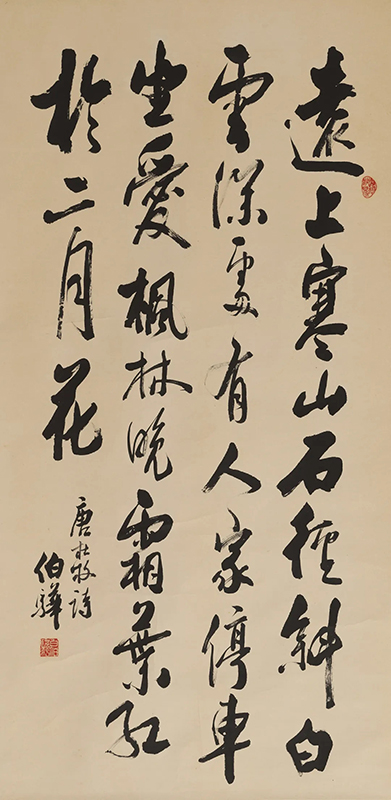 遠上寒山石徑斜白
雲深處有人家停車
坐愛楓林晚霜葉紅
於二月花
唐杜牧詩
伯驊